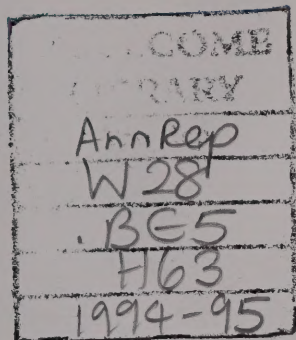 COME
RARY
AnnRep
W28
.BE5
H63
1994-95